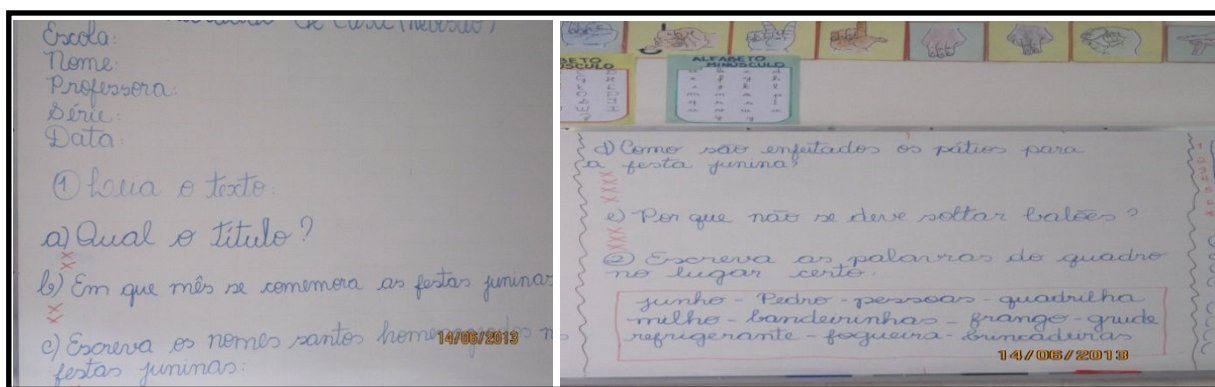 de Casa (Revisão)
Escola:
Nome:
Professora:
Série:
Data:
① Leia o texto:
a) Qual o título?
xx
b) Em que mês se comemora as festas juninas
xx
c) Escreva os nomes santos homenageados n
festas juninas:
14/06/2013
ALFABETO
MINÚSCULO
d) Como são enfeitados os pátios para
a festa junina?
xxxx
e) Por que não se deve soltar balões?
xxx
② Escreva as palavras do quadro
no lugar certo.
junho - Pedro - pessoas - quadrilha
milho - bandeirinhas - frango - grude
refrigerante - fogueira - brincadeiras
14/06/2013